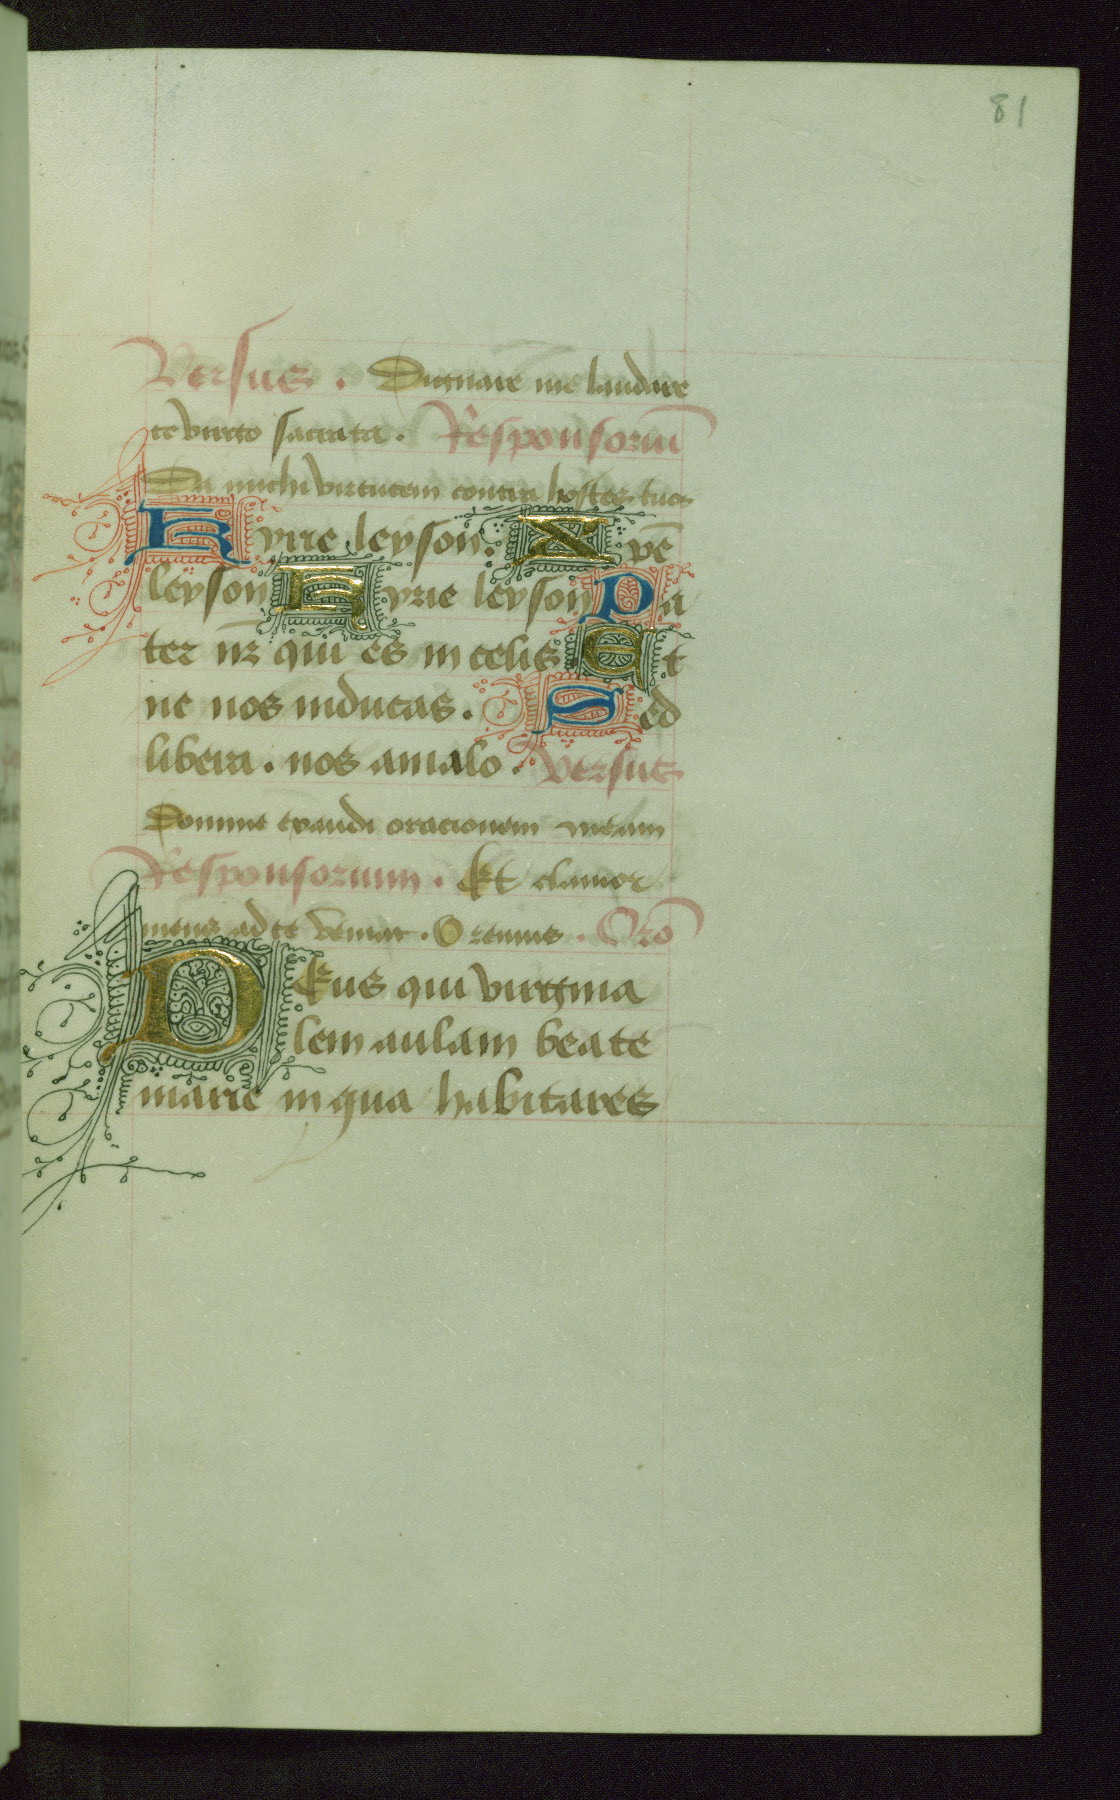 81
Versus . Dignare me laudare
te virgo sacrata . Responsoriū
Da michi virtutem contra hostes tuos
Kyrie leyson . Xpē
leyson Kyrie leyson Pa
ter nr̄ qui es in celis Et
ne nos inducas . Sed
libera . nos amalo . Versus
Domine exaudi orationem meam
Responsorium . Et clamor
meus ad te veniat . Oremus . Orō
Deus qui virgina
lem aulam beate
marie in qua habitares